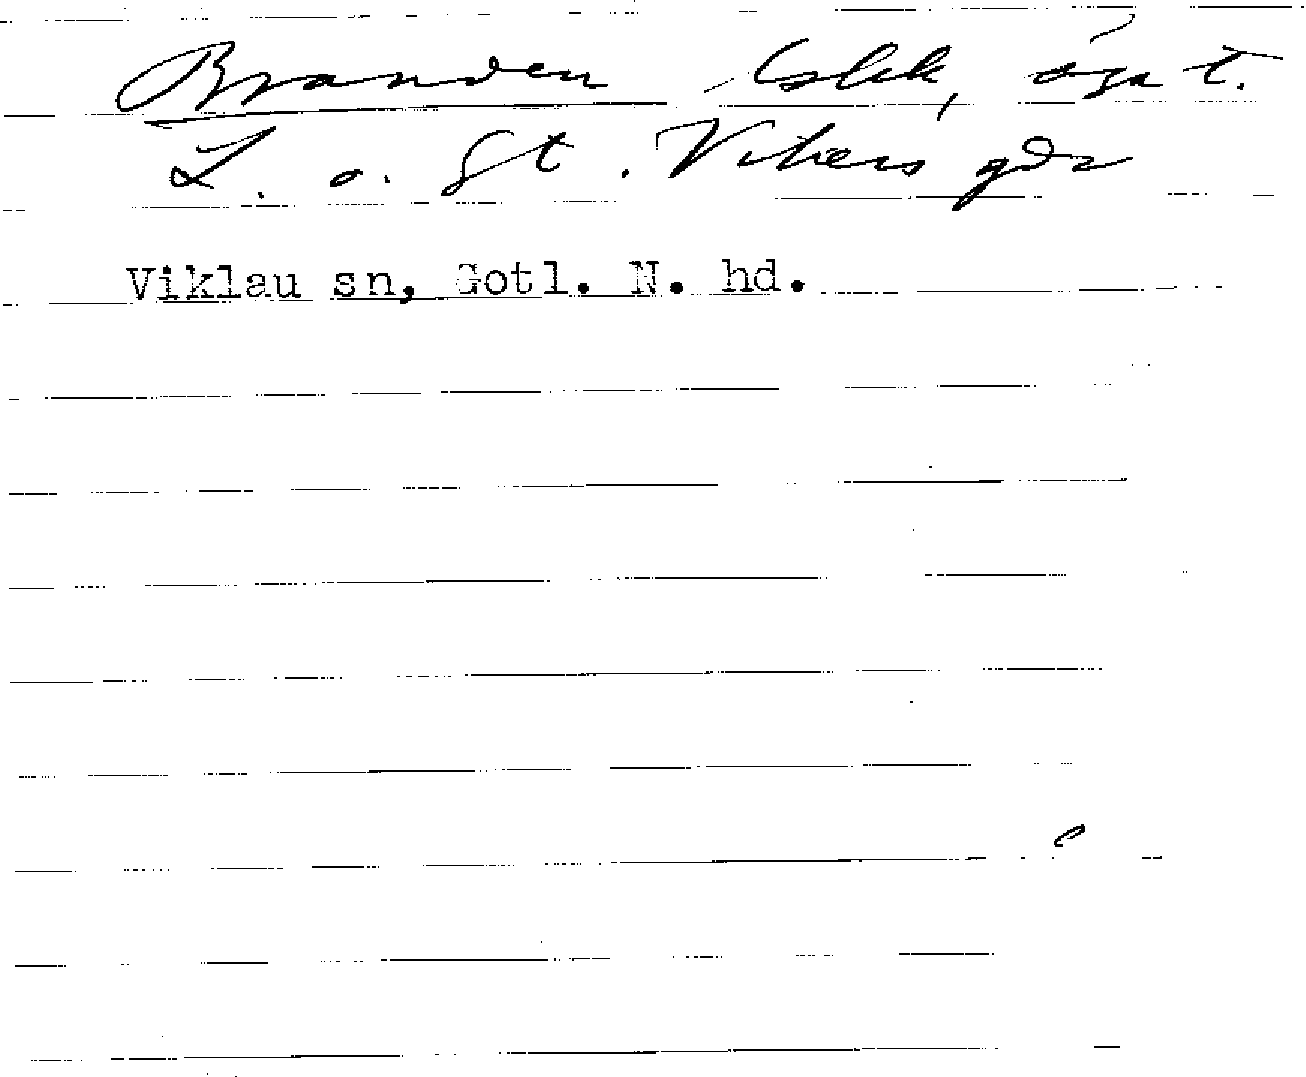 Branden , ägn t.
L. o. St. Vikers gdr
Viklau sn, Gotl. N. hd.